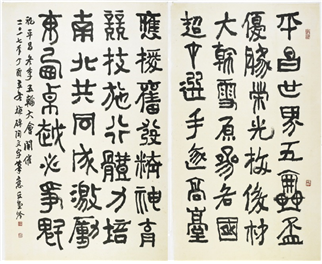 平昌世界五輪盃
優勝榮光放俊材
大韓雪原參各國
超中選手登高臺
應援奮發精神育
競技施行體力培
南北共同成激勵
東西卓越必爭魁
祝平昌冬季五輪大會開催
二〇一七年丁酉